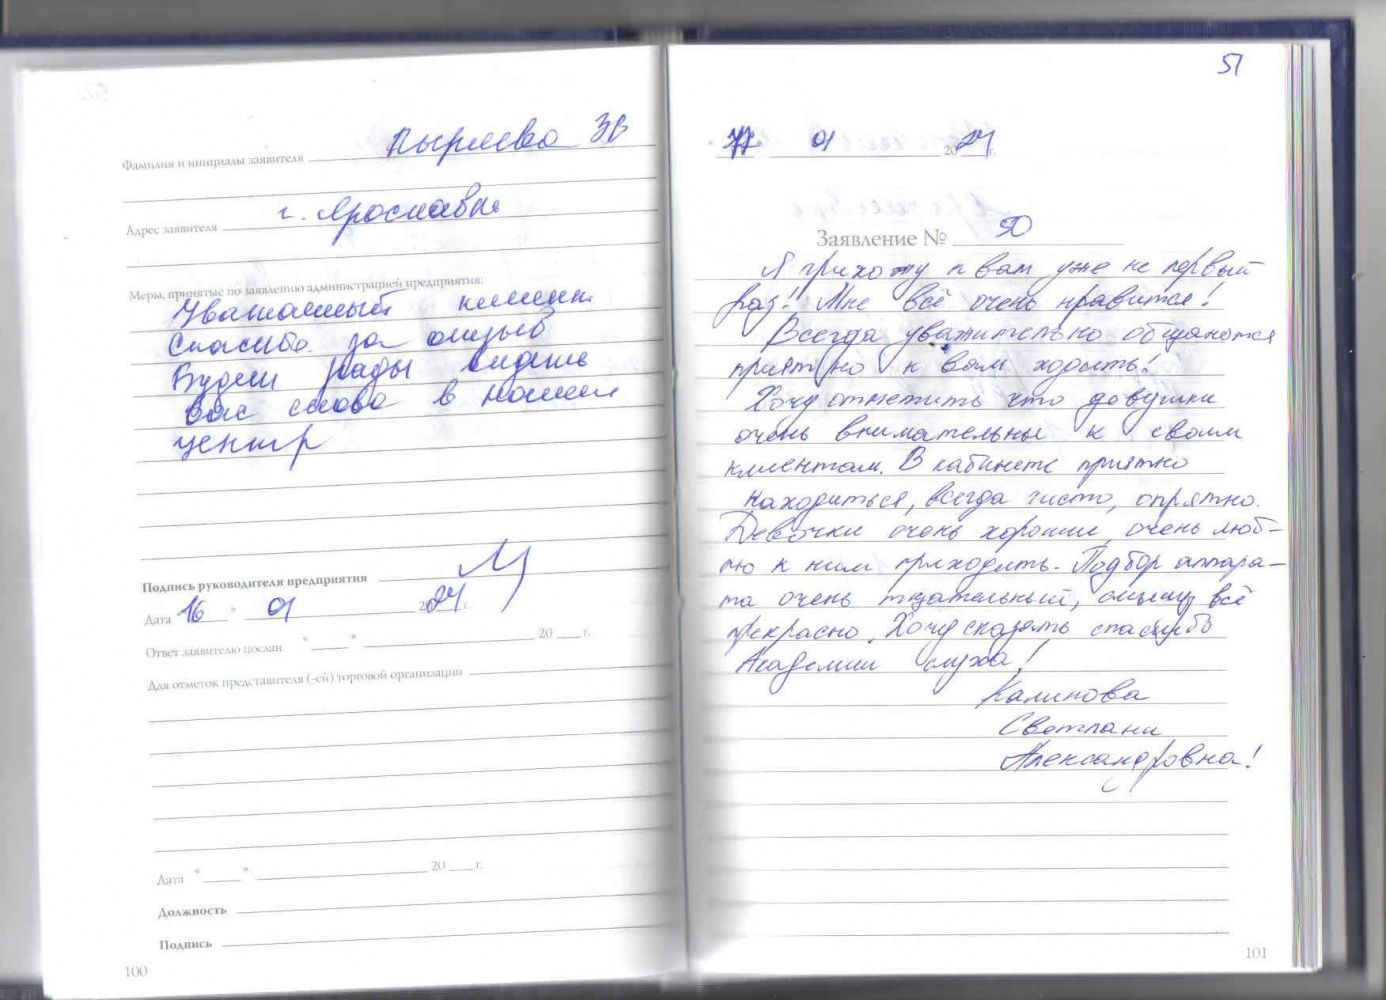 Фамилия и инициалы заявителя Пырлева ЗВ
Адрес заявителя г. Ярославль
Меры, принятые по заявлению администрацией предприятия:
Уважаемый клиент
Спасибо за отзыв
Будем рады видеть
Вас снова в нашем
центр
Подпись руководителя предприятия
Дата 16 " 01 2024 г.
Ответ заявителю послан " ___ " ___ 20 ___ г.
Для отметок представителя (-ей) торговой организации
Дата " ___ " ___ 20 ___ г.
Должность
Подпись
100
51
17 01 2024 г.
Заявление № 50
Я прихожу к вам уже не первый
раз! Мне всё очень нравится!
Всегда уважительно общаются
приятно к вам ходить!
Хочу отметить что девушки
очень внимательны к своим
клиентам. В кабинете приятно
находиться, всегда чисто, опрятно.
Девочки очень хорошие, очень люб-
лю к ним приходить. Подбор аппара-
та очень тщательный, слышу всё
прекрасно. Хочу сказать спасибо
Академии слуха!
Калинова
Светлана
Александровна!
101